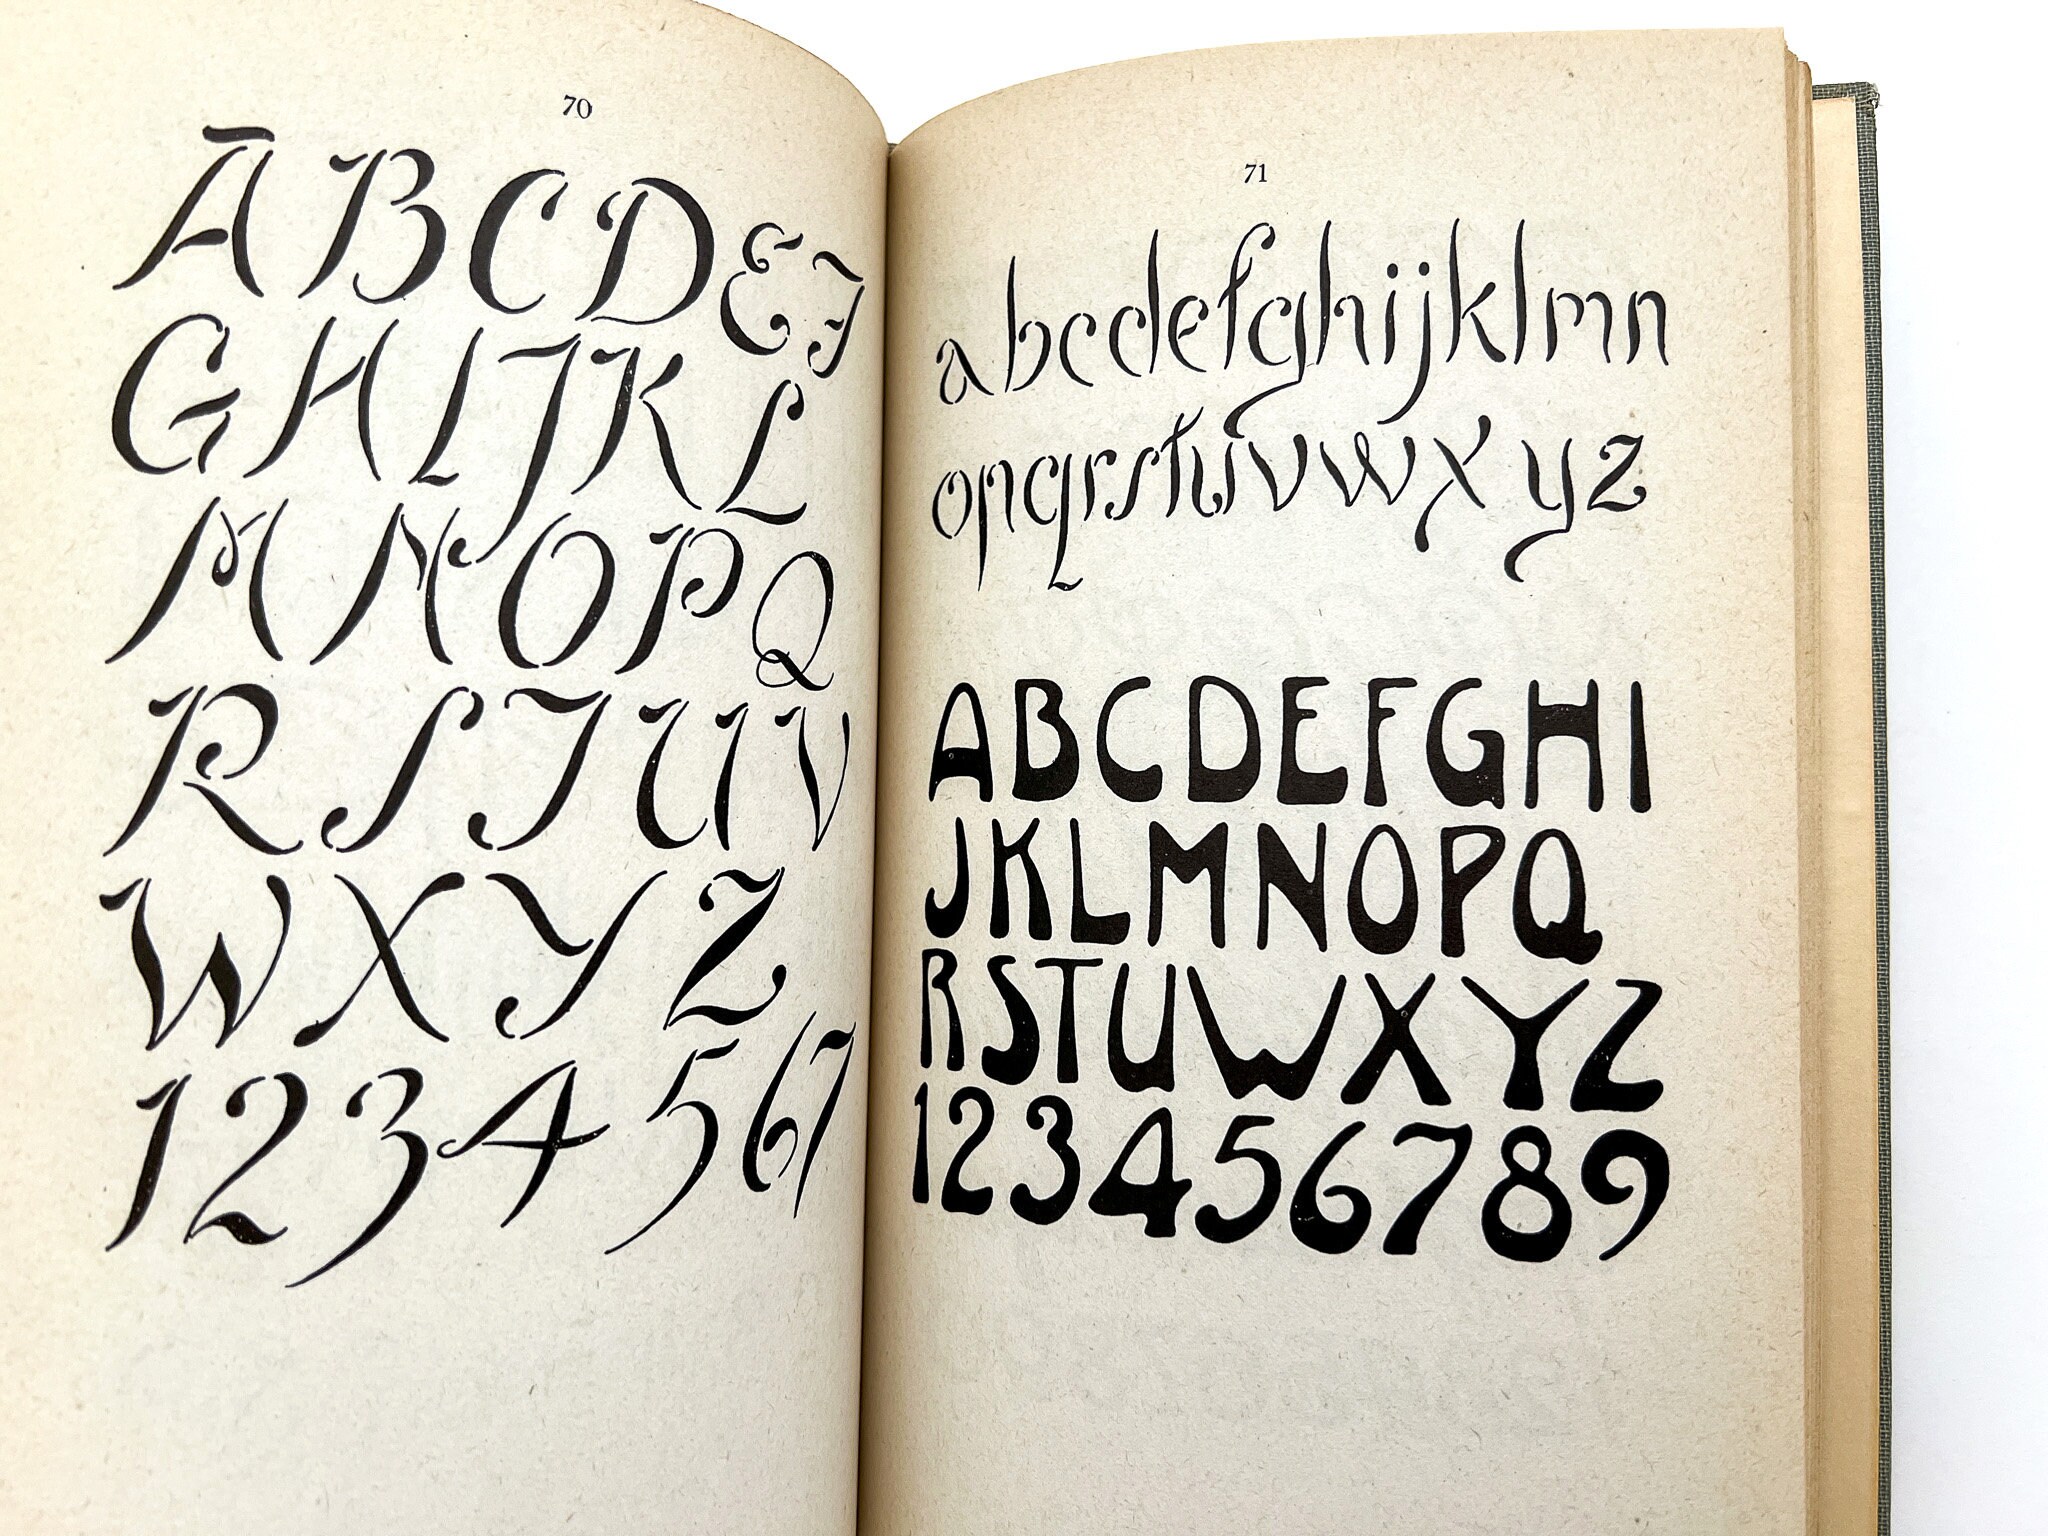 70
A B C D E F
G H I J K L
M N O P Q
R S T U U V
W X Y Z
1 2 3 4 5 6 7
71
a b c d e f g h i j k l m n
o p q r s t u v w x y z
A B C D E F G H I
J K L M N O P Q
R S T U W X Y Z
1 2 3 4 5 6 7 8 9